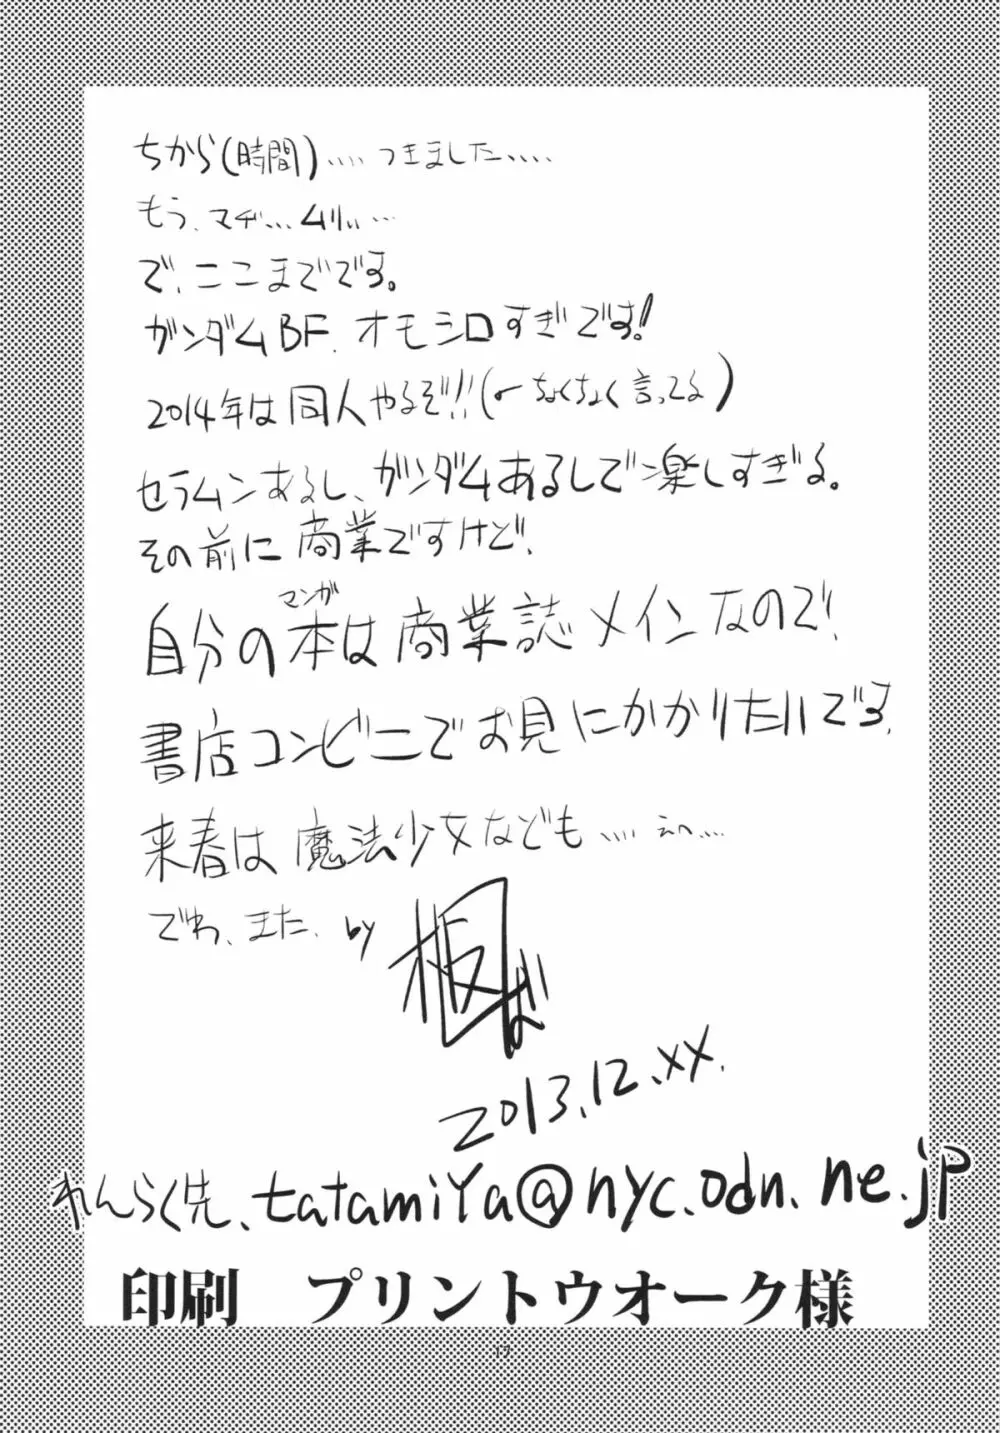 ちから(時間)....つきました....
もう、マヂ...ムリ...…
で、ここまでです。
ガンダムBF、オモシロすぎです!
2014年は同人やるぞ!!(←ちょくちょく言ってる)
セラムンあるし、ガンダムあるしで楽しすぎる。
その前に商業ですけど!
マンガ
自分の本は商業誌メインなので!
書店コンビニでお見にかかりたいです。
来春は魔法少女なども....えへ....
でわ、また、by
板ば
2013.12.XX.
れんらく先、tatamiya@nyc.odn.ne.jp
印刷 プリントウオーク様
17